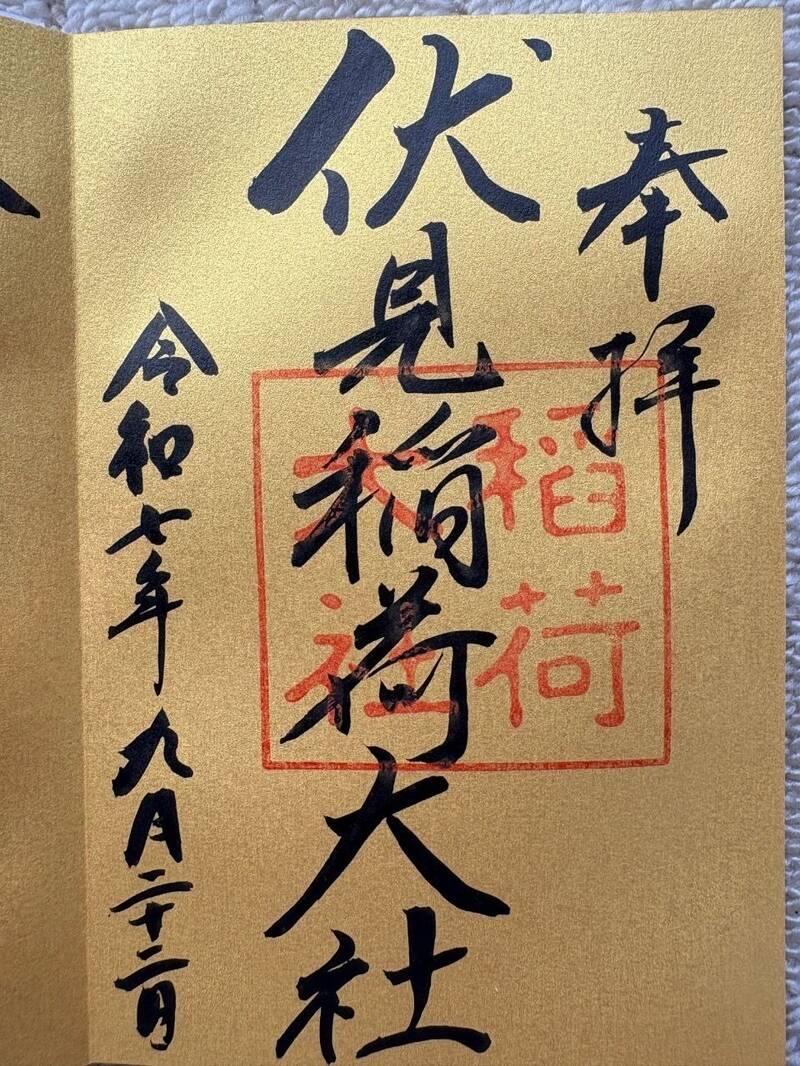 奉拝
伏見稲荷大社
稲荷
大社
令和七年九月二十二日